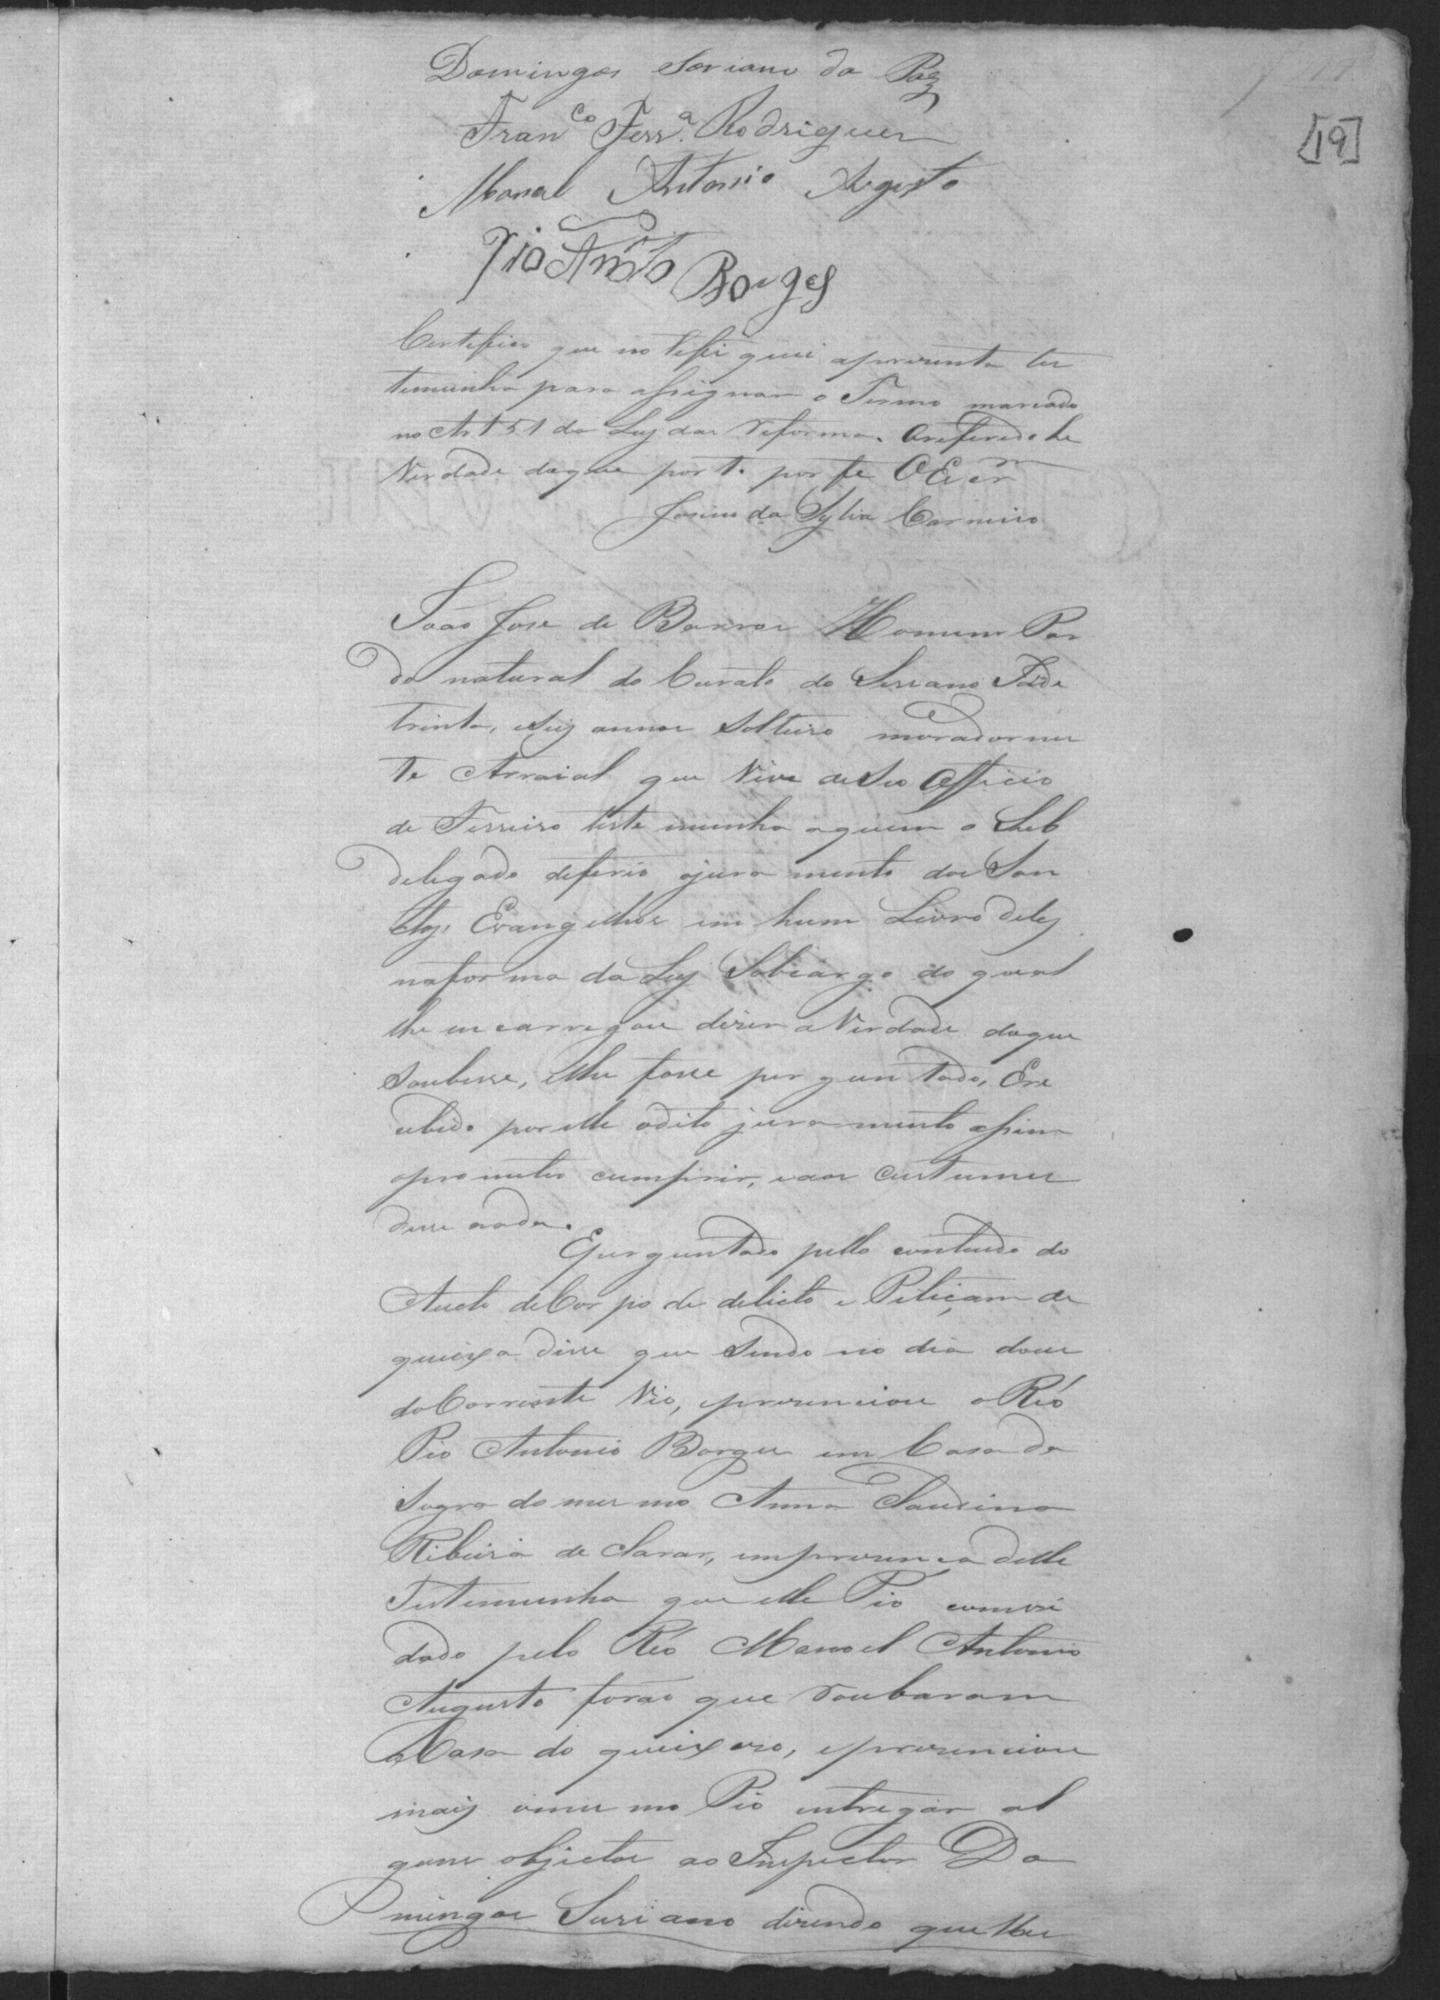 [19]
Domingos Soriano da Paz
Franco Ferra Rodrigues
Manoel Antonio Augusto
Pio Antto Borges
Certefico que notefiquei apresenta tes
temunha para assignar o Termo marcado
no Art 51 da Ley das reforma. O referido he
Verdade do que porto por fe O Escram
da Sylva Carneiro
João Jose de Barros Homem Par
do natural do Curato do Serrano Idade
trinta, e seis annos Solteiro morador nes
te Arraial que Vive de Seo Officio
de Ferreiro testemunha aquem o Sub
delegado deferio ojuramento dos San
tos Evangelhos em hum Livro deles
naforma da Ley Sobcargo do qual
lhe encarregou diser a Verdade doque
Soubesse, elhe fosse perguntado, Ere
cebido por elle odito juramento assim
oprometeo cumprir, eaos Custumes
disse nada.
Eperguntado pello contheudo do
Aucto de Corpo de delicto e Petiçam de
queixa disse que Sendo no dia doze
do Corrente Vio, epresenciou o Réo
Pio Antonio Borges em Casa da
Sogra do mesmo Anna
Ribeira de, empresença delle
Testemunha que elle Pio convi
dado pelo Réo Manoel Antonio
Augusto forão que roubaram
aCasa do queixozo, epresenciou
mais omesmo Pio entregar al
guns objectos ao Inspector Do
mingos Suriano disendo que lhe